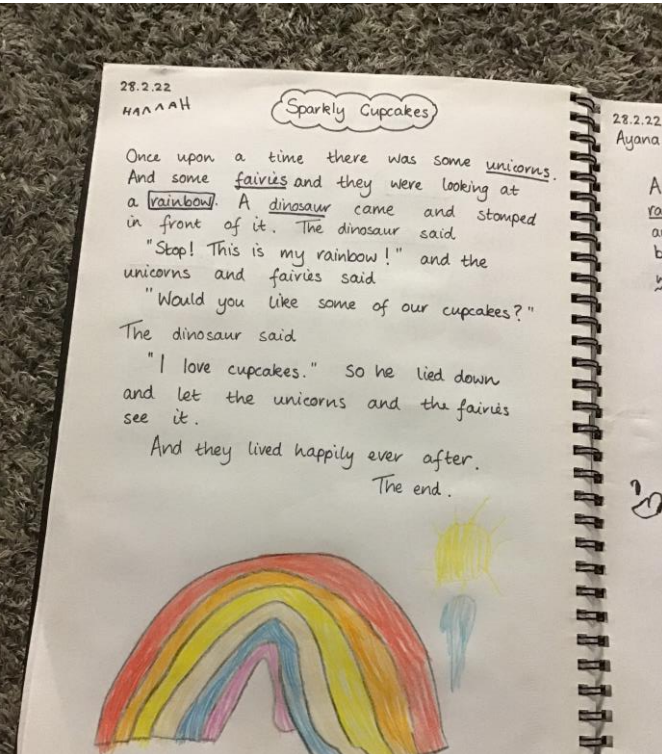 28.2.22
HANNAH
Sparkly Cupcakes
Once upon a time there was some unicorns.
And some fairies and they were looking at
a rainbow. A dinosaur came and stomped
in front of it. The dinosaur said
"Stop! This is my rainbow!" and the
unicorns and fairies said
"Would you like some of our cupcakes?"
The dinosaur said
"I love cupcakes." So he lied down
and let the unicorns and the fairies
see it.
And they lived happily ever after.
The end.
28.2.22
Ayana
A